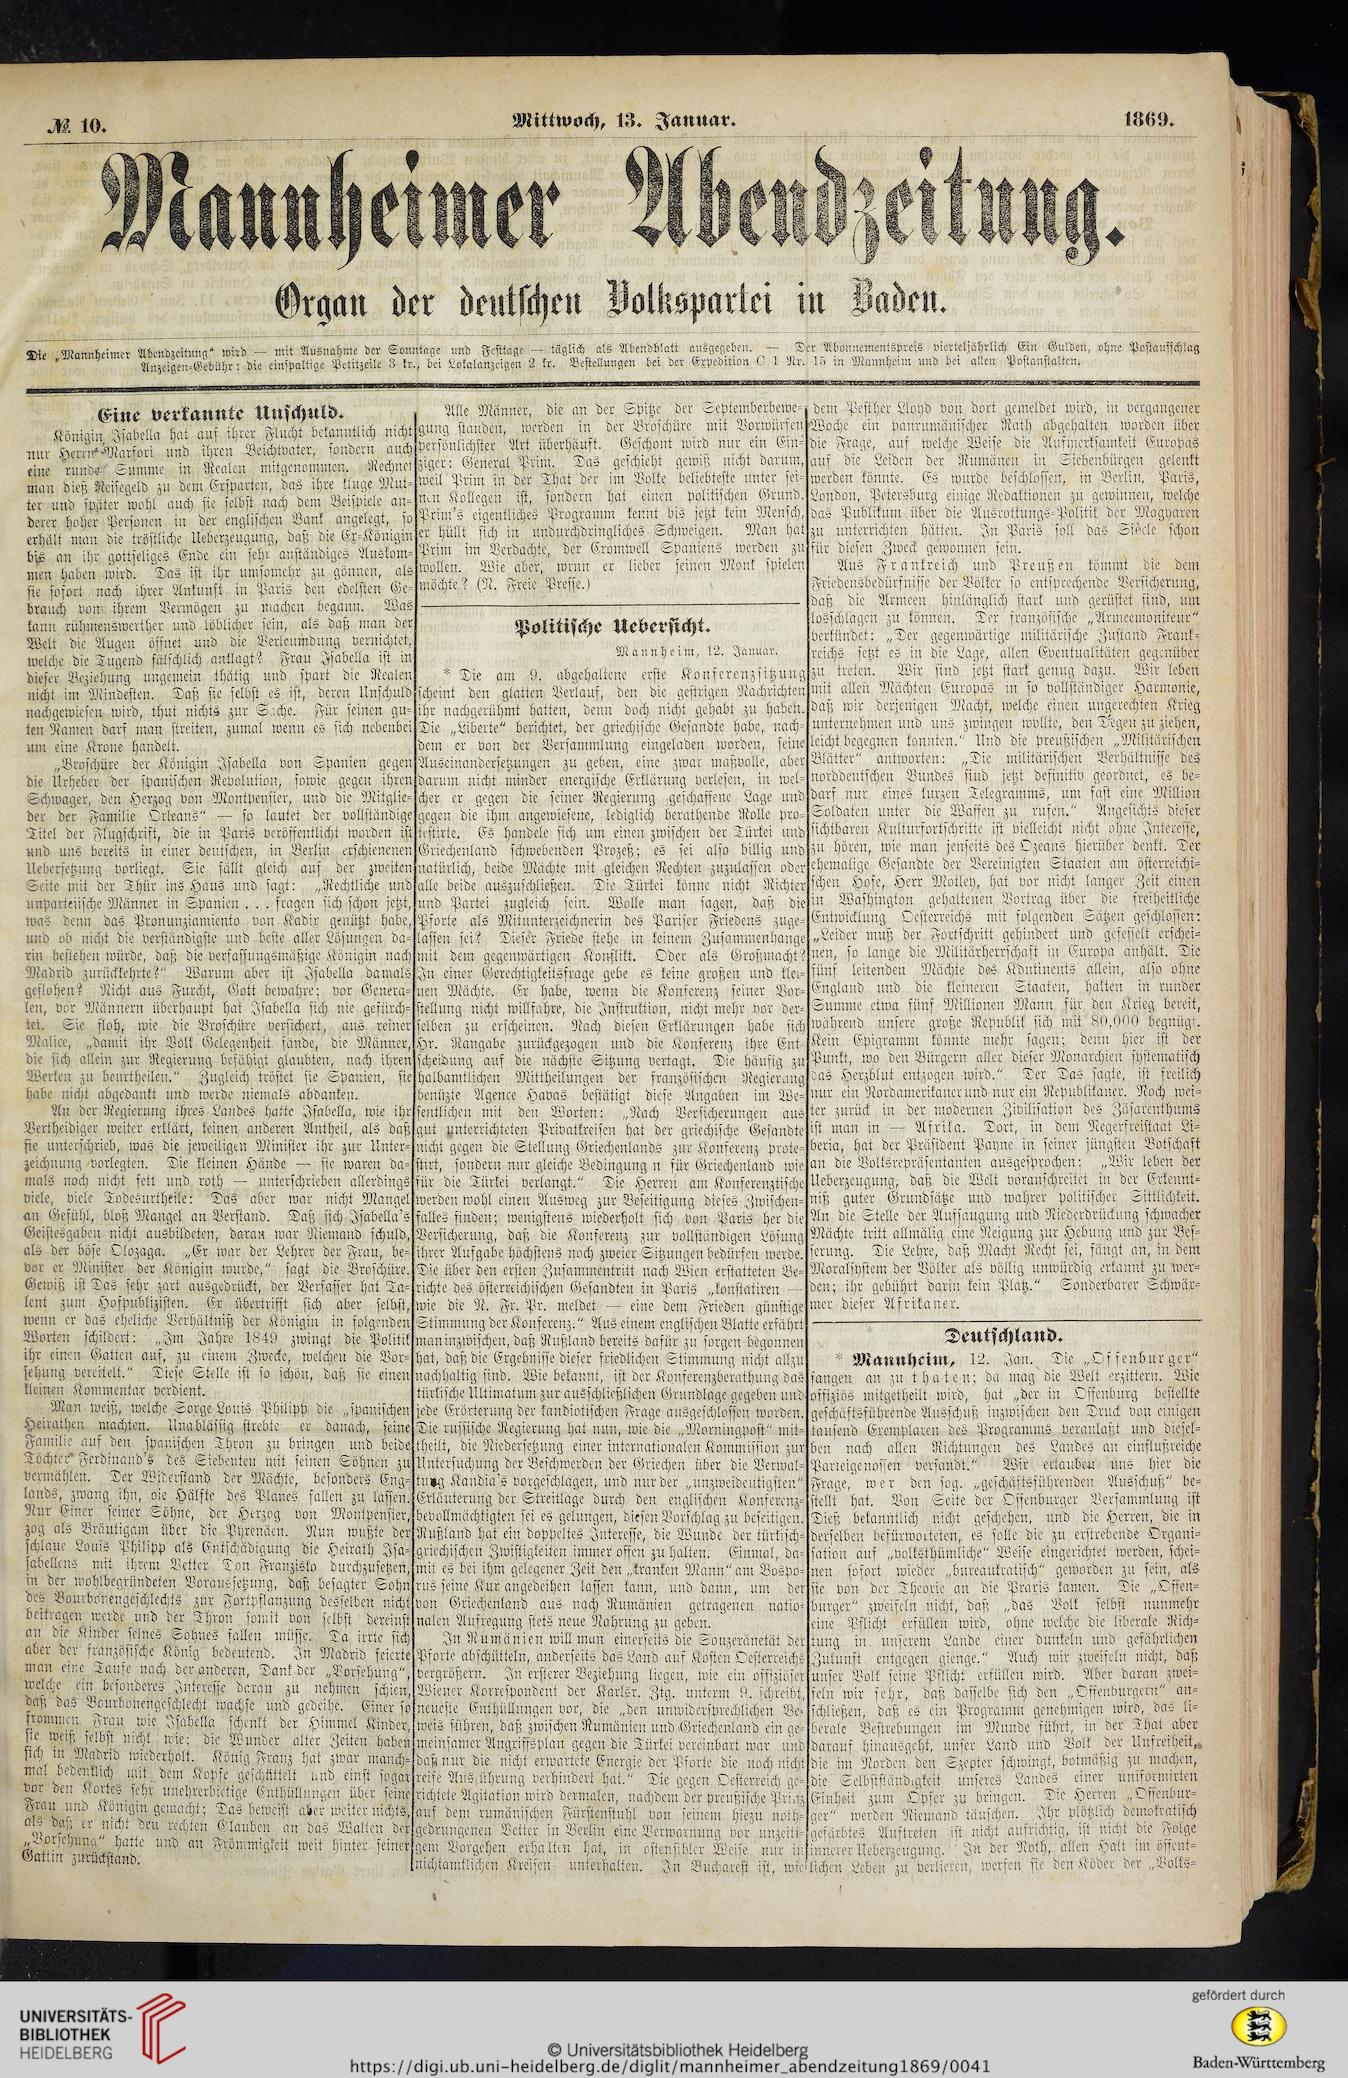 № 10.
Mittwoch, 13. Januar.
1869.
Mannheimer Abendzeitung.
Organ der deutschen Volkspartei in Baden.
Die „Mannheimer Abendzeitung“ wird — mit Ausnahme der Sonntage und Festtage — täglich als Abendblatt ausgegeben. — Der Abonnementspreis vierteljährlich Ein Gulden, ohne Postaufschlag
Anzeigen-Gebühr: die einspaltige Petitzeile 3 kr., bei Lokalanzeigen 2 kr. Bestellungen bei der Expedition C 1 Nr. 15 in Mannheim und bei allen Postanstalten.
Eine verkannte Unschuld.
Königin Isabella hat auf ihrer Flucht bekanntlich nicht
nur Herrn Marfori und ihren Beichtvater, sondern auch
eine runde Summe in Realen mitgenommen. Rechnet
man dieß Reisegeld zu dem Ersparten, das ihre kluge Mut-
ter und später wohl auch sie selbst nach dem Beispiele an-
derer hoher Personen in der englischen Bank angelegt, so
erhält man die tröstliche Ueberzeugung, daß die Ex-Königin
bis an ihr gottseliges Ende ein sehr anständiges Auskom-
men haben wird. Das ist ihr umsomehr zu gönnen, als
sie sofort nach ihrer Ankunft in Paris den edelsten Ge-
brauch von ihrem Vermögen zu machen begann. Was
kann rühmenswerther und löblicher sein, als daß man der
Welt die Augen öffnet und die Verleumdung vernichtet,
welche die Tugend fälschlich anklagt? Frau Isabella ist in
dieser Beziehung ungemein thätig und spart die Realen
nicht im Mindesten. Daß sie selbst es ist, deren Unschuld
nachgewiesen wird, thut nichts zur Sache. Für seinen gu-
ten Namen darf man streiten, zumal wenn es sich nebenbei
um eine Krone handelt.
„Broschüre der Königin Isabella von Spanien gegen
die Urheber der spanischen Revolution, sowie gegen ihren
Schwager, den Herzog von Montpensier, und die Mitglie-
der der Familie Orleans“ — so lautet der vollständige
Titel der Flugschrift, die in Paris veröffentlicht worden ist
und uns bereits in einer deutschen, in Berlin erschienenen
Uebersetzung vorliegt. Sie fällt gleich auf der zweiten
Seite mit der Thür ins Haus und sagt: „Rechtliche und
unparteiische Männer in Spanien . . . fragen sich schon jetzt,
was denn das Pronunziamiento von Kadix genützt habe,
und ob nicht die verständigste und beste aller Lösungen da-
rin bestehen würde, daß die verfassungsmäßige Königin nach
Madrid zurückkehrte?“ Warum aber ist Isabella damals
geflohen? Nicht aus Furcht, Gott bewahre; vor Genera-
len, vor Männern überhaupt hat Isabella sich nie gefürch-
tet. Sie floh, wie die Broschüre versichert, aus reiner
Malice, „damit ihr Volk Gelegenheit fände, die Männer,
die sich allein zur Regierung befähigt glaubten, nach ihren
Werken zu beurtheilen.“ Zugleich tröstet sie Spanien, sie
habe nicht abgedankt und werde niemals abdanken.
An der Regierung ihres Landes hatte Isabella, wie ihr
Vertheidiger weiter erklärt, keinen anderen Antheil, als daß
sie unterschrieb, was die jeweiligen Minister ihr zur Unter-
zeichnung vorlegten. Die kleinen Hände — sie waren da-
mals noch nicht fett und roth — unterschrieben allerdings
viele, viele Todesurtheile: Das aber war nicht Mangel
an Gefühl, bloß Mangel an Verstand. Daß sich Isabella's
Geistesgaben nicht ausbildeten, daran war Niemand schuld,
als der böse Olozaga. „Er war der Lehrer der Frau, be-
vor er Minister der Königin wurde,“ sagt die Broschüre.
Gewiß ist Das sehr zart ausgedrückt, der Verfasser hat Ta-
lent zum Hofpublizisten. Er übertrifft sich aber selbst,
wenn er das eheliche Verhältniß der Königin in folgenden
Worten schildert: „Im Jahre 1849 zwingt die Politik
ihr einen Gatten auf, zu einem Zwecke, welchen die Vor-
sehung vereitelt.“ Diese Stelle ist so schön, daß sie einen
kleinen Kommentar verdient.
Man weiß, welche Sorge Louis Philipp die „spanischen
Heirathen machten. Unablässig strebte er danach, seine
Familie auf den spanischen Thron zu bringen und beide
Töchter Ferdinand's des Siebenten mit seinen Söhnen zu
vermählen. Der Widerstand der Mächte, besonders Eng-
lands, zwang ihn, die Hälfte des Planes fallen zu lassen.
Nur Einer seiner Söhne, der Herzog von Montpensier,
zog als Bräutigam über die Pyrenäen. Nun wußte der
schlaue Louis Philipp als Entschädigung die Heirath Isa-
sabellens mit ihrem Vetter Don Franzisko durchzusetzen,
in der wohlbegründeten Voraussetzung, daß besagter Sohn
des Bourbonengeschlechts zur Fortpflanzung desselben nicht
beitragen werde und der Thron somit von selbst dereinst
an die Kinder seines Sohnes fallen müsse. Da irrte sich
aber der französische König bedeutend. In Madrid feierte
man eine Taufe nach der anderen, Dank der „Vorsehung“,
welche ein besonderes Interesse daran zu nehmen schien,
daß das Bourbonengeschlecht wachse und gedeihe. Einer so
frommen Frau wie Isabella schenkt der Himmel Kinder,
sie weiß selbst nicht wie; die Wunder alter Zeiten haben
sich in Madrid wiederholt. König Franz hat zwar manch-
mal bedenklich mit dem Kopfe geschüttelt und einst sogar
vor den Kortes sehr unehrerbietige Enthüllungen über seine
Frau und Königin gemacht; Das beweist aber weiter nichts,
als daß er nicht den rechten Glauben an das Walten der
„Vorsehung“ hatte und an Frömmigkeit weit hinter seiner
Gattin zurückstand.
Alle Männer, die an der Spitze der Septemberbewe-
gung standen, werden in der Broschüre mit Vorwürfen
persönlichster Art überhäuft. Geschont wird nur ein Ein-
ziger: General Prim. Das geschieht gewiß nicht darum,
weil Prim in der That der im Volke beliebteste unter sei-
nen Kollegen ist, sondern hat einen politischen Grund.
Prim's eigentliches Programm kennt bis jetzt kein Mensch,
er hüllt sich in undurchdringliches Schweigen. Man hat
Prim im Verdachte, der Cromwell Spaniens werden zu
wollen. Wie aber, wenn er lieber seinen Monk spielen
möchte? (N. Freie Presse.)
Politische Uebersicht.
Mannheim, 12. Januar.
* Die am 9. abgehaltene erste Konferenzsitzung
scheint den glatten Verlauf, den die gestrigen Nachrichten
ihr nachgerühmt hatten, denn doch nicht gehabt zu haben.
Die „Liberte“ berichtet, der griechische Gesandte habe, nach-
dem er von der Versammlung eingeladen worden, seine
Auseinandersetzungen zu geben, eine zwar maßvolle, aber
darum nicht minder energische Erklärung verlesen, in wel-
cher er gegen die seiner Regierung geschaffene Lage und
gegen die ihm angewiesene, lediglich berathende Rolle pro-
testirte. Es handele sich um einen zwischen der Türkei und
Griechenland schwebenden Prozeß; es sei also billig und
natürlich, beide Mächte mit gleichen Rechten zuzulassen oder
alle beide auszuschließen. Die Türkei könne nicht Richter
und Partei zugleich sein. Wolle man sagen, daß die
Pforte als Mitunterzeichnerin des Pariser Friedens zuge-
lassen sei? Dieser Friede stehe in keinem Zusammenhange
mit dem gegenwärtigen Konflikt. Oder als Großmacht?
In einer Gerechtigkeitsfrage gebe es keine großen und klei-
nen Mächte. Er habe, wenn die Konferenz seiner Vor-
stellung nicht willfahre, die Instruktion, nicht mehr vor der-
selben zu erscheinen. Nach diesen Erklärungen habe sich
Hr. Rangabe zurückgezogen und die Konferenz ihre Ent-
scheidung auf die nächste Sitzung vertagt. Die häufig zu
halbamtlichen Mittheilungen der französischen Regierung
benützte Agence Havas bestätigt diese Angaben im We-
sentlichen mit den Worten: „Nach Versicherungen aus
gut unterrichteten Privatkreisen hat der griechische Gesandte
nicht gegen die Stellung Griechenlands zur Konferenz prote-
stirt, sondern nur gleiche Bedingung n für Griechenland wie
für die Türkei verlangt.“ Die Herren am Konferenztische
werden wohl einen Ausweg zur Beseitigung dieses Zwischen-
falles finden; wenigstens wiederholt sich von Paris her die
Versicherung, daß die Konferenz zur vollständigen Lösung
ihrer Aufgabe höchstens noch zweier Sitzungen bedürfen werde.
Die über den ersten Zusammentritt nach Wien erstatteten Be-
richte des österreichischen Gesandten in Paris „konstatiren —
wie die N. Fr. Pr. meldet — eine dem Frieden günstige
Stimmung der Konferenz.“ Aus einem englischen Blatte erfährt
man inzwischen, daß Rußland bereits dafür zu sorgen begonnen
hat, daß die Ergebnisse dieser friedlichen Stimmung nicht allzu
nachhaltig sind. Wie bekannt, ist der Konferenzberathung das
türkische Ultimatum zur ausschließlichen Grundlage gegeben und
jede Erörterung der kandiotischen Frage ausgeschlossen worden.
Die russische Regierung hat nun, wie die „Morningpost“ mit-
theilt, die Niedersetzung einer internationalen Kommission zur
Untersuchung der Beschwerden der Griechen über die Verwal-
tung Kandia's vorgeschlagen, und nur der „unzweideutigsten“
Erläuterung der Streitlage durch den englischen Konferenz-
bevollmächtigten sei es gelungen, diesen Vorschlag zu beseitigen.
Rußland hat ein doppeltes Interesse, die Wunde der türkisch-
griechischen Zwistigkeiten immer offen zu halten. Einmal, da-
mit es bei ihm gelegener Zeit den „kranken Mann“ am Bospo-
rus seine Kur angedeihen lassen kann, und dann, um der
von Griechenland aus nach Rumänien getragenen natio-
nalen Aufregung stets neue Nahrung zu geben.
In Rumänien will man einerseits die Souzeränetät der
Pforte abschütteln, anderseits das Land auf Kosten Oesterreichs
vergrößern. In ersterer Beziehung liegen, wie ein offiziöser
Wiener Korrespondent der Karlsr. Ztg. unterm 9. schreibt,
neueste Enthüllungen vor, die „den unwidersprechlichen Be-
weis führen, daß zwischen Rumänien und Griechenland ein ge-
meinsamer Angriffsplan gegen die Türkei vereinbart war und
daß nur die nicht erwartete Energie der Pforte die noch nicht
reife Ausführung verhindert hat.“ Die gegen Oesterreich ge-
richtete Agitation wird dermalen, nachdem der preußische Prinz
auf dem rumänischen Fürstenstuhl von seinem hiezu noth-
gedrungenen Vetter in Berlin eine Verwarnung vor unzeiti-
gem Vorgehen erhalten hat, in ostensibler Weise nur in
nichtamtlichen Kreisen unterhalten. In Bucharest ist, wie
dem Pesther Lloyd von dort gemeldet wird, in vergangener
Woche ein panrumänischer Rath abgehalten worden über
die Frage, auf welche Weise die Aufmerksamkeit Europas
auf die Leiden der Rumänen in Siebenbürgen gelenkt
werden könnte. Es wurde beschlossen, in Berlin, Paris,
London, Petersburg einige Redaktionen zu gewinnen, welche
das Publikum über die Ausrottungs-Politik der Magyaren
zu unterrichten hätten. In Paris soll das Siècle schon
für diesen Zweck gewonnen sein.
Aus Frankreich und Preußen kömmt die dem
Friedensbedürfnisse der Völker so entsprechende Versicherung,
daß die Armeen hinlänglich stark und gerüstet sind, um
losschlagen zu können. Der französische „Armeemoniteur“
verkündet: „Der gegenwärtige militärische Zustand Frank-
reichs setzt es in die Lage, allen Eventualitäten gegenüber
zu treten. Wir sind jetzt stark genug dazu. Wir leben
mit allen Mächten Europas in so vollständiger Harmonie,
daß wir derjenigen Macht, welche einen ungerechten Krieg
unternehmen und uns zwingen wollte, den Degen zu ziehen,
leicht begegnen könnten.“ Und die preußischen „Militärischen
Blätter“ antworten: „Die militärischen Verhältnisse des
norddeutschen Bundes sind jetzt definitiv geordnet, es be-
darf nur eines kurzen Telegramms, um fast eine Million
Soldaten unter die Waffen zu rufen.“ Angesichts dieser
sichtbaren Kulturfortschritte ist vielleicht nicht ohne Interesse,
zu hören, wie man jenseits des Ozeans hierüber denkt. Der
ehemalige Gesandte der Vereinigten Staaten am österreichi-
schen Hofe, Herr Motley, hat vor nicht langer Zeit einen
in Washington gehaltenen Vortrag über die freiheitliche
Entwicklung Oesterreichs mit folgenden Sätzen geschlossen:
„Leider muß der Fortschritt gehindert und gefesselt erschei-
nen, so lange die Militärherrschaft in Europa anhält. Die
fünf leitenden Mächte des Kontinents allein, also ohne
England und die kleineren Staaten, halten in runder
Summe etwa fünf Millionen Mann für den Krieg bereit,
während unsere große Republik sich mit 80,000 begnügt.
Kein Epigramm könnte mehr sagen; denn hier ist der
Punkt, wo den Bürgern aller dieser Monarchien systematisch
das Herzblut entzogen wird.“ Der Das sagte, ist freilich
nur ein Nordamerikaner und nur ein Republikaner. Noch wei-
ter zurück in der modernen Zivilisation des Zäsarenthums
ist man in — Afrika. Dort, in dem Negerfreistaat Li-
beria, hat der Präsident Payne in seiner jüngsten Botschaft
an die Volksrepräsentanten ausgesprochen: „Wir leben der
Ueberzeugung, daß die Welt voranschreitet in der Erkennt-
niß guter Grundsätze und wahrer politischer Sittlichkeit.
An die Stelle der Aufsaugung und Niederdrückung schwacher
Mächte tritt allmälig eine Neigung zur Hebung und zur Bes-
serung. Die Lehre, daß Macht Recht sei, fängt an, in dem
Moralsystem der Völker als völlig unwürdig erkannt zu wer-
den; ihr gebührt darin kein Platz.“ Sonderbarer Schwär-
mer dieser Afrikaner.
Deutschland.
* Mannheim, 12. Jan. Die „Offenburger“
fangen an zu thaten; da mag die Welt erzittern. Wie
offiziös mitgetheilt wird, hat „der in Offenburg bestellte
geschäftsführende Ausschuß inzwischen den Druck von einigen
tausend Exemplaren des Programms veranlaßt und diesel-
ben nach allen Richtungen des Landes an einflußreiche
Parteigenossen versandt.“ Wir erlauben uns hier die
Frage, wer den sog. „geschäftsführenden Ausschuß“ be-
stellt hat. Von Seite der Offenburger Versammlung ist
Dieß bekanntlich nicht geschehen, und die Herren, die in
derselben befürworteten, es solle die zu erstrebende Organi-
sation auf „volksthümliche“ Weise eingerichtet werden, schei-
nen sofort wieder „bureaukratisch“ geworden zu sein, als
sie von der Theorie an die Praxis kamen. Die „Offen-
burger“ zweifeln nicht, daß „das Volk selbst nunmehr
eine Pflicht erfüllen wird, ohne welche die liberale Rich-
tung in unserem Lande einer dunkeln und gefährlichen
Zukunft entgegen gienge.“ Auch wir zweifeln nicht, daß
unser Volk seine Pflicht erfüllen wird. Aber daran zwei-
feln wir sehr, daß dasselbe sich den „Offenburgern“ an-
schließen, daß es ein Programm genehmigen wird, das li-
berale Bestrebungen im Munde führt, in der That aber
darauf hinausgeht, unser Land und Volk der Unfreiheit,
die im Norden den Szepter schwingt, botmäßig zu machen,
die Selbstständigkeit unseres Landes einer uniformirten
Einheit zum Opfer zu bringen. Die Herren „Offenbur-
ger“ werden Niemand täuschen. Ihr plötzlich demokratisch
gefärbtes Auftreten ist nicht aufrichtig, ist nicht die Folge
innerer Ueberzeugung. In der Noth, allen Halt im öffent-
lichen Leben zu verlieren, werfen sie den Köder der „Volks-
UNIVERSITÄTS-
BIBLIOTHEK
HEIDELBERG
© Universitätsbibliothek Heidelberg
https://digi.ub.uni-heidelberg.de/diglit/mannheimer_abendzeitung1869/0041
gefördert durch
Baden-Württemberg